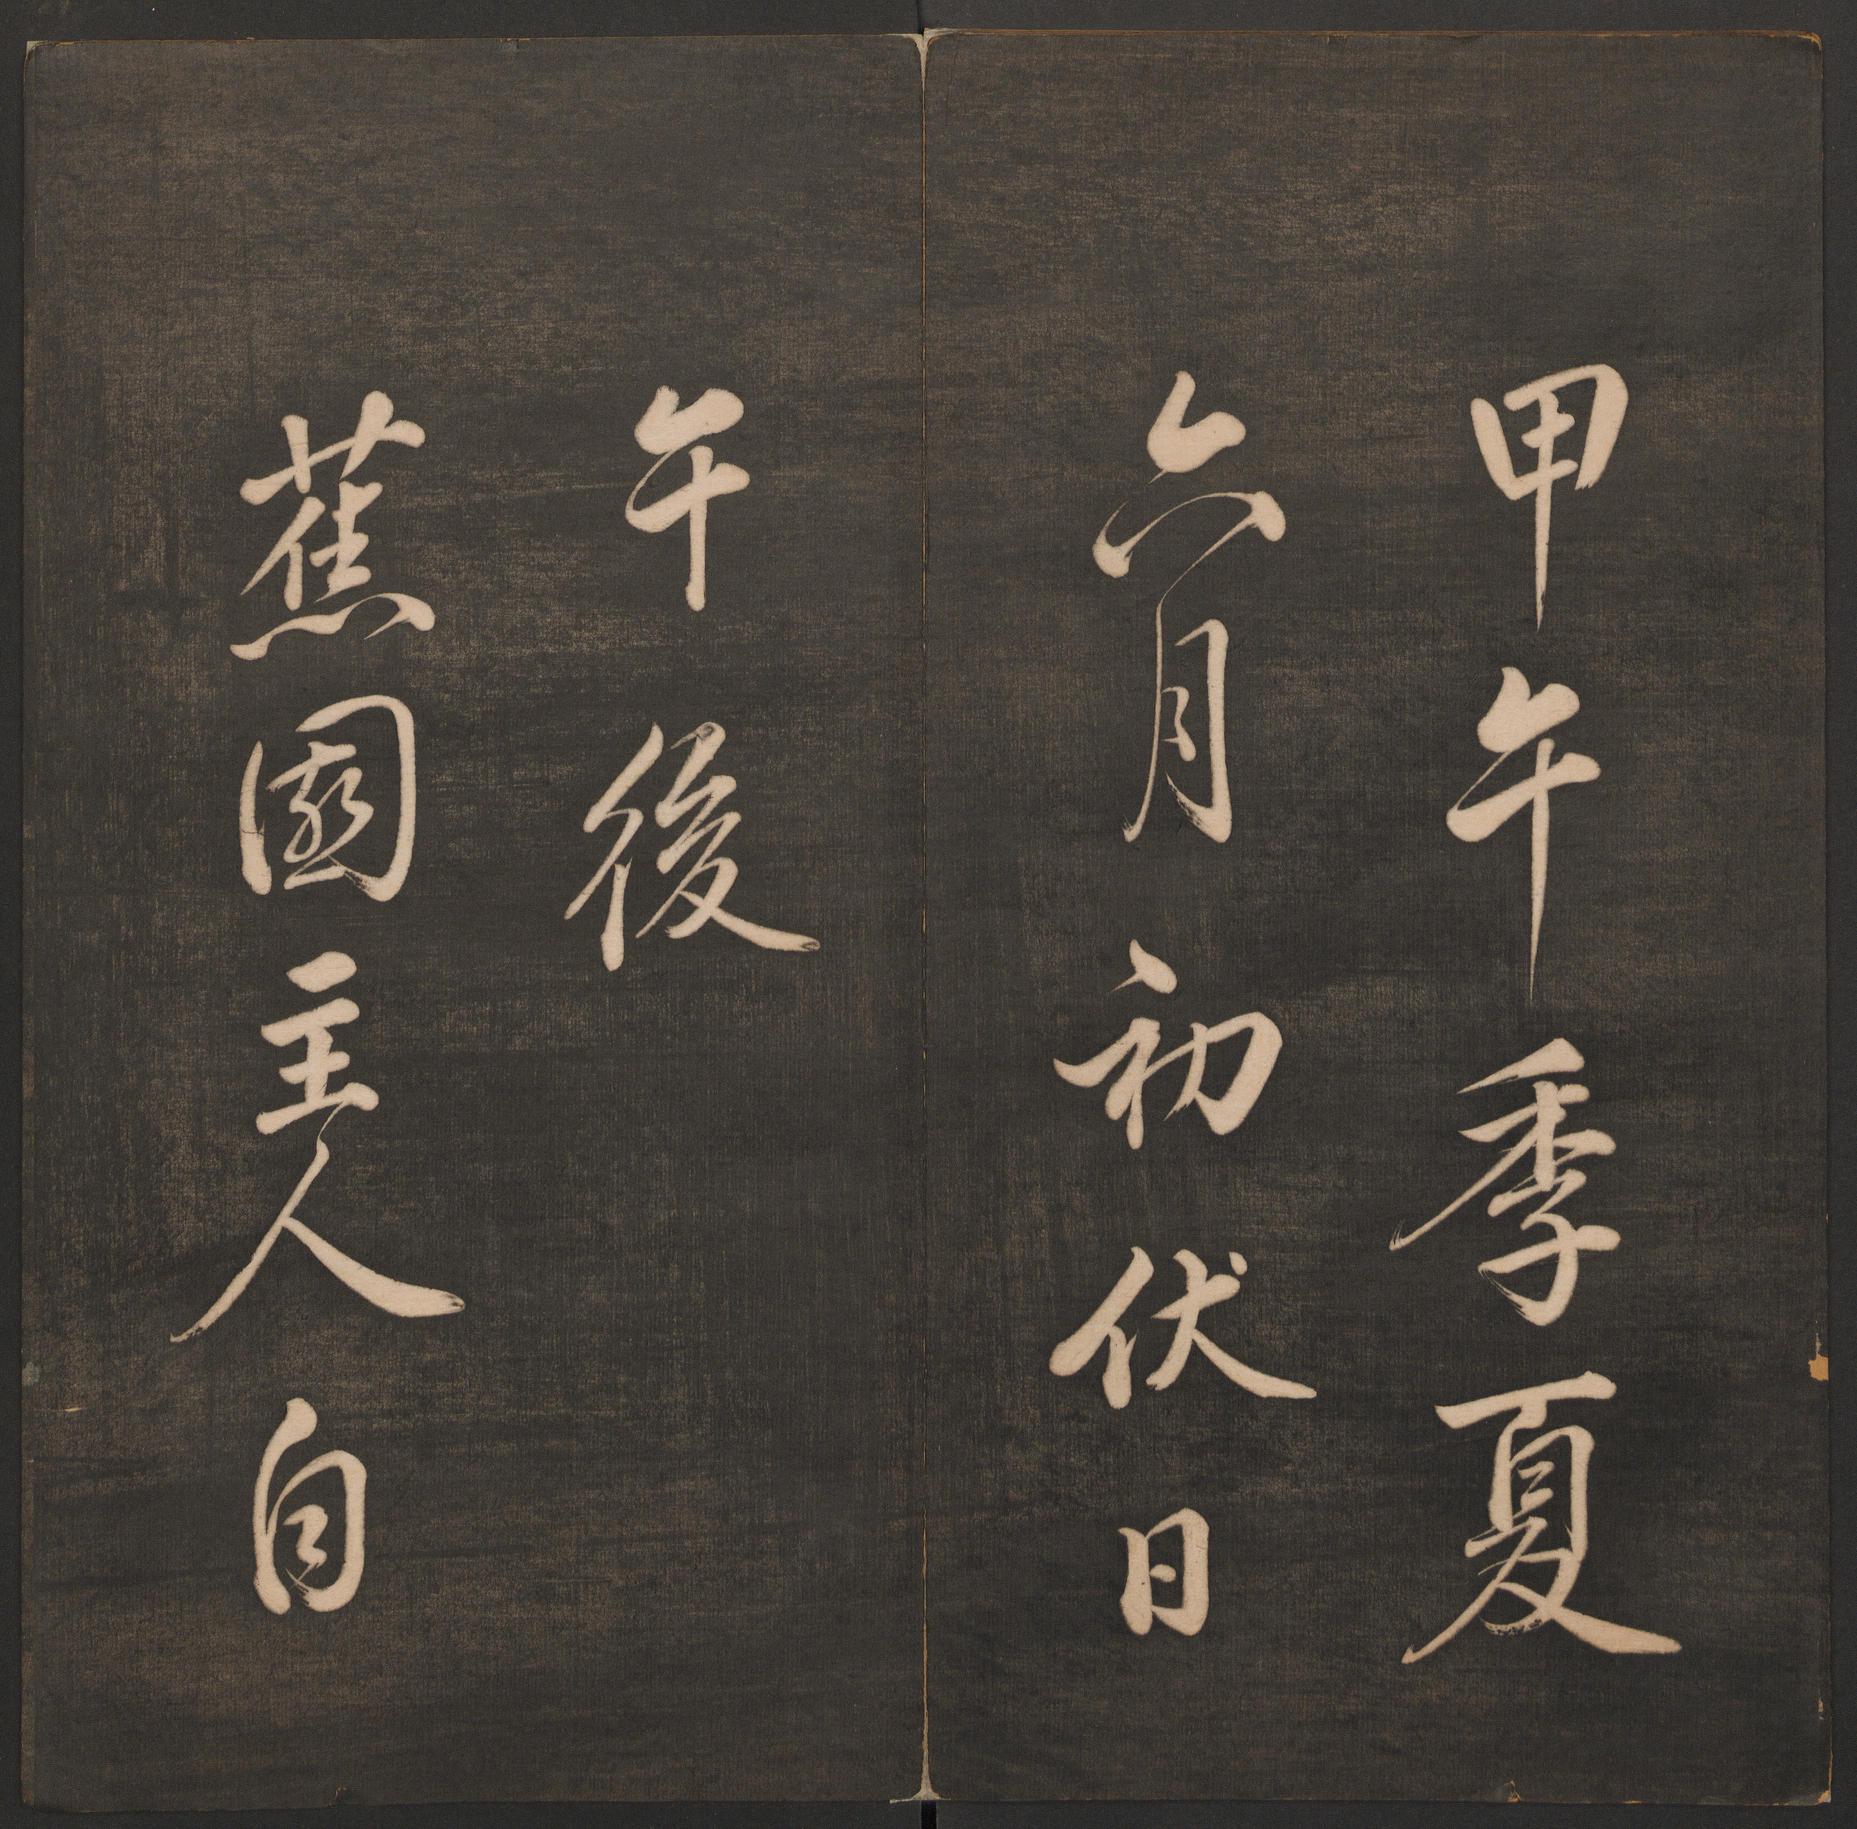 甲午季夏
六月初伏日
午後
蕉園主人自